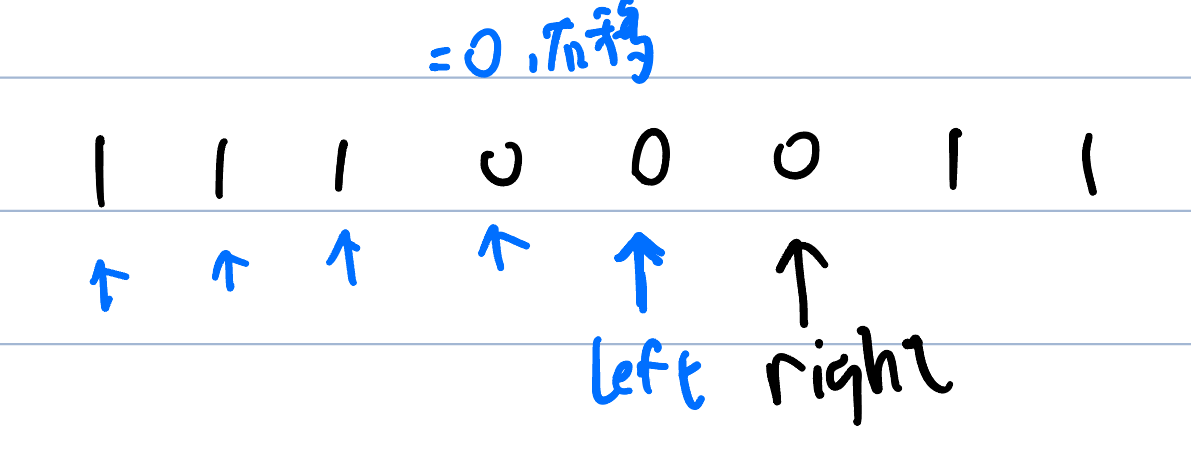 =0,不移
1 1 1 0 0 0 1 1
left right